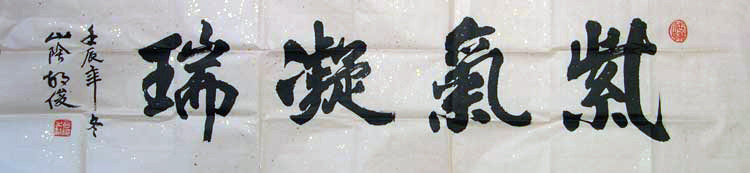 紫氣凝瑞
壬辰年冬
山陰胡俊